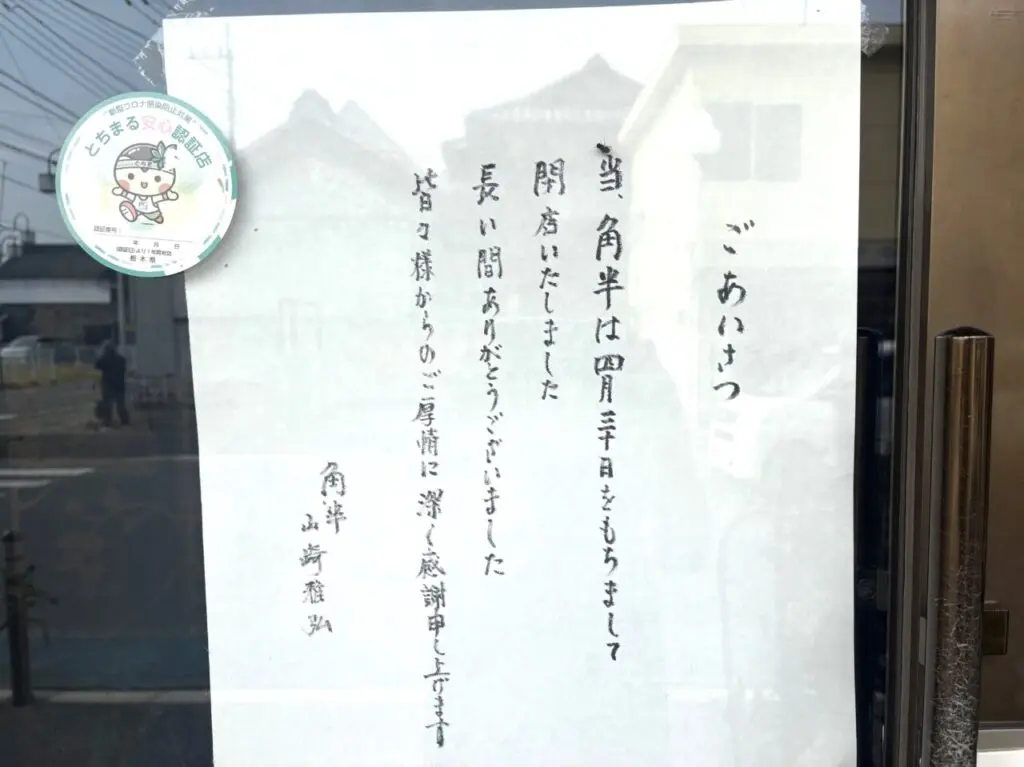 ごあいさつ
当、角半は四月三十日をもちまして
閉店いたしました
長い間ありがとうございました
皆々様からのご厚情に深く感謝申し上げます
角半
山崎雅弘
新型コロナ感染防止対策
とちまる安心認証店
認証番号：
年 月 日
(認証日)より1年間有効
栃木県